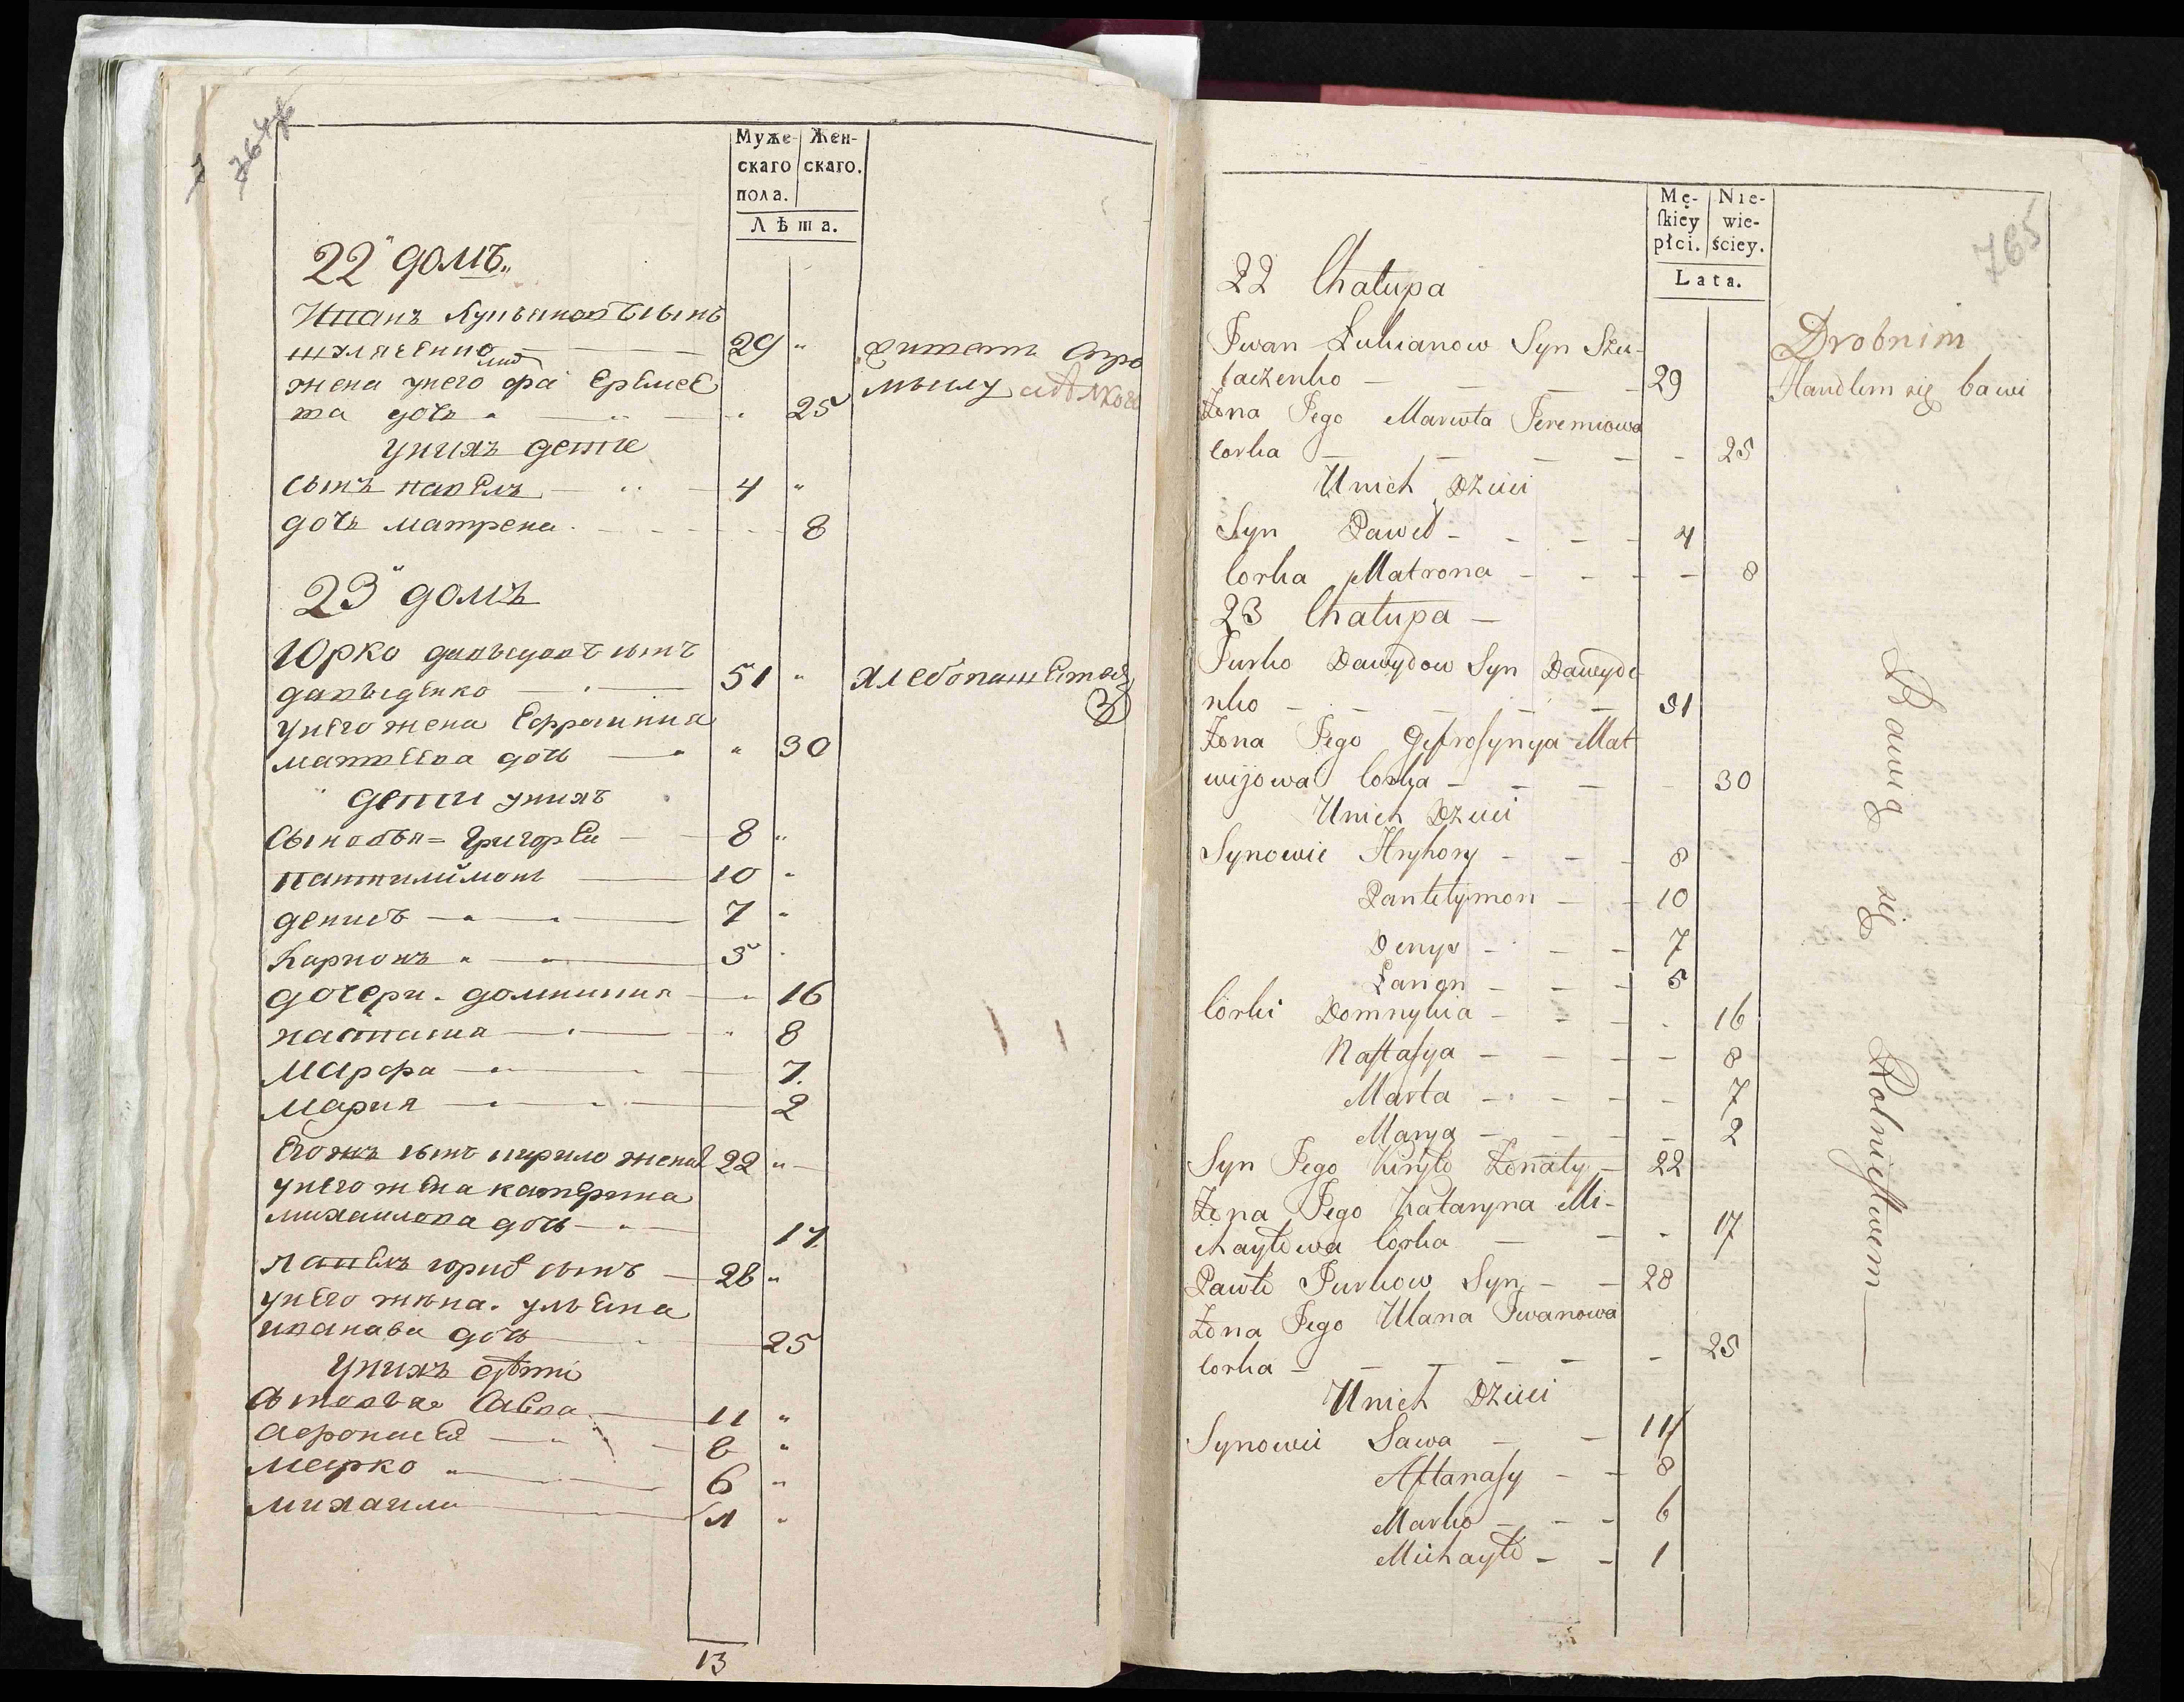 764
Муже-
скаго
пола.
Жен-
скаго.
Лѣта.
22 домъ
Иванъ Лукьяновъ сынъ
29
жена унего еремее
ва дочь 25
унихъ дети
сынъ павелъ 4
дочь матрена 8
23 домъ
Юрко давыдовъ сынъ
давыденко 51 хлебопашества
унего жена Ефросиния
матвеева дочь 30
дети унихъ
Сыновья = Григореи 8
пантилимонъ 10
денисъ 7
Карионъ 5
дочери домникия 16
настасия 8
Марфа 7
мария 2
Егожъ сынъ кирило женат 22
унего жена катерина
михаилова дочь 17
павелъ юриев сынъ 28
унего жена ульяна
иванава дочь 25
унихъ дѣти
Сыновья Савва 11
Афонасеи 8
марко 6
михаила 1
13
765
Mę-
ſkiey
płci.
Nie-
wie-
ściey.
Lata.
22 Chałupa
Iwan Łukianow Syn Szu-
laczenko 29
Drobnim
Handlem się bawi
Żona Jego Marwta Jeremiowa
Corka 25
Unich Dzieci
Syn Paweł 4
Corka Matrona 8
23 Chałupa
Jurko Dawydow Syn Dawyde
nko 51
Żona Jego Gefroſynya Mat
wijowa Corka 30
Unich Dzieci
Synowie Hryhory 8
Pantelymon 10
Denys 7
Łarion 5
Córki Domnykia 16
Naſtaſya 8
Marta 7
Marya 2
Syn Jego Kiryło Żonaty 22
Żona Jego Katarzyna Mi-
chayłowa Córka 17
Pawło Jurkow Syn 28
Żona Jego Ulana Iwanowa
Corka 25
Unich Dzieci
Synowie Sawa 11
Aftanaſy 8
Marko 6
Michayło 1
Bawią się Rolnictwem